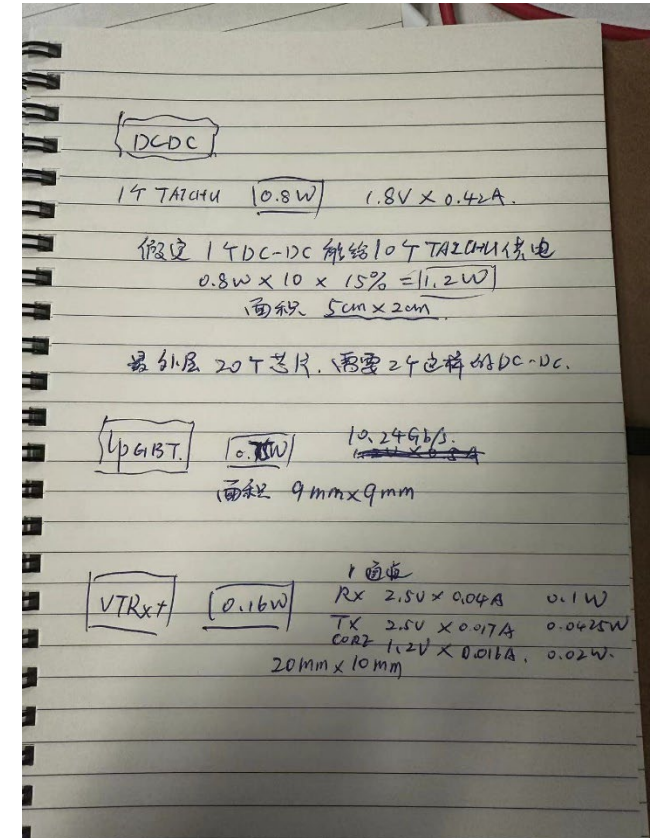 DCDC
1个TAICHU 0.8W 1.8V × 0.42A.
假定1个DC-DC能给10个TAICHU供电
0.8W × 10 × 15% = 1.2W
面积 5cm×2cm
最外层20个芯片,需要2个这样的DC-DC.
lpGBT. 10.24Gb/s.
面积 9mm×9mm
1通道
VTRx+ 0.16W RX 2.5V × 0.04A 0.1W
TX 2.5V × 0.017A 0.0425W
CORE 1.2V × 0.016A. 0.02W.
20mm×10mm